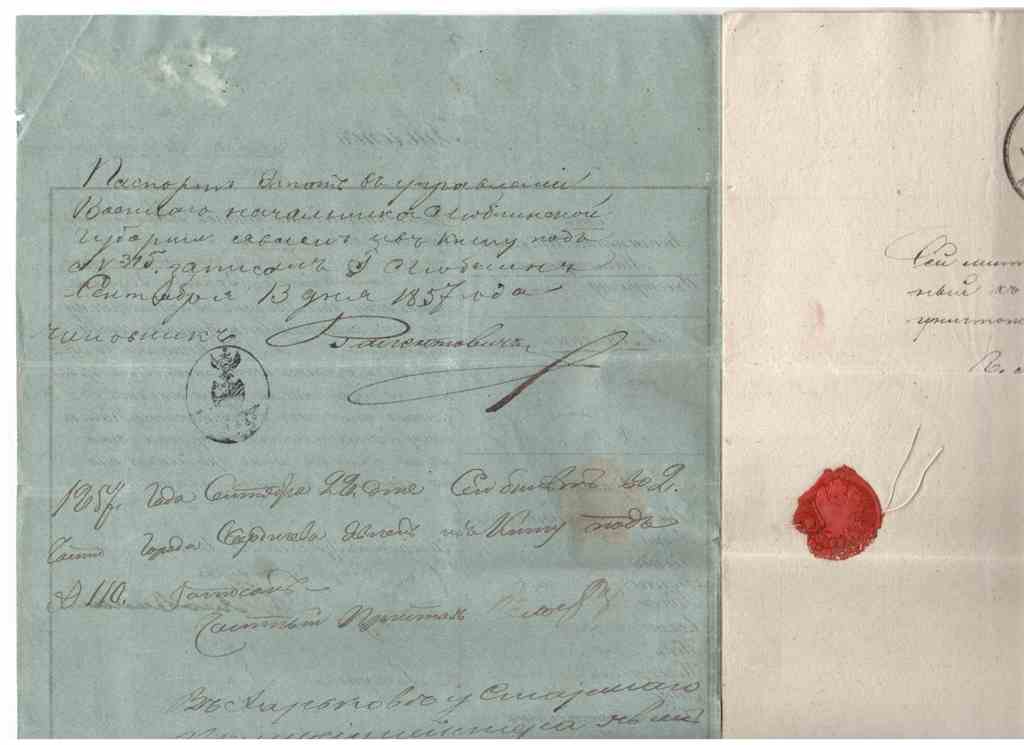 Паспортъ сей въ управленіи
Военнаго начальника Люблинской
Губерніи явленъ и въ книгу подъ
№ 315. записанъ Г. Люблинъ
Сентября 13 дня 1857 года
Чиновникъ
1857 г. Года Сентября 22 дня Сей билетъ во 2.
Части Города Бердичева явленъ и въ Книгу подъ
№ 110. Записанъ
Частный Приставъ
Въ Харьковѣ у Старшаго
Полицiймейстера явленъ
Сей
ный къ